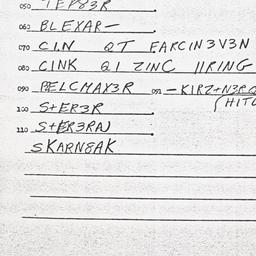 050 TEP83R
060 BLEXAR-
070 CIN QT EARCIN3V3N
080 CINK QI ZINC IIRING
090 BELCMAX3R 091 -KIRZ+N3R
(HITL
100 S+ER3R
110 S+ER3RN
SKARN8AK